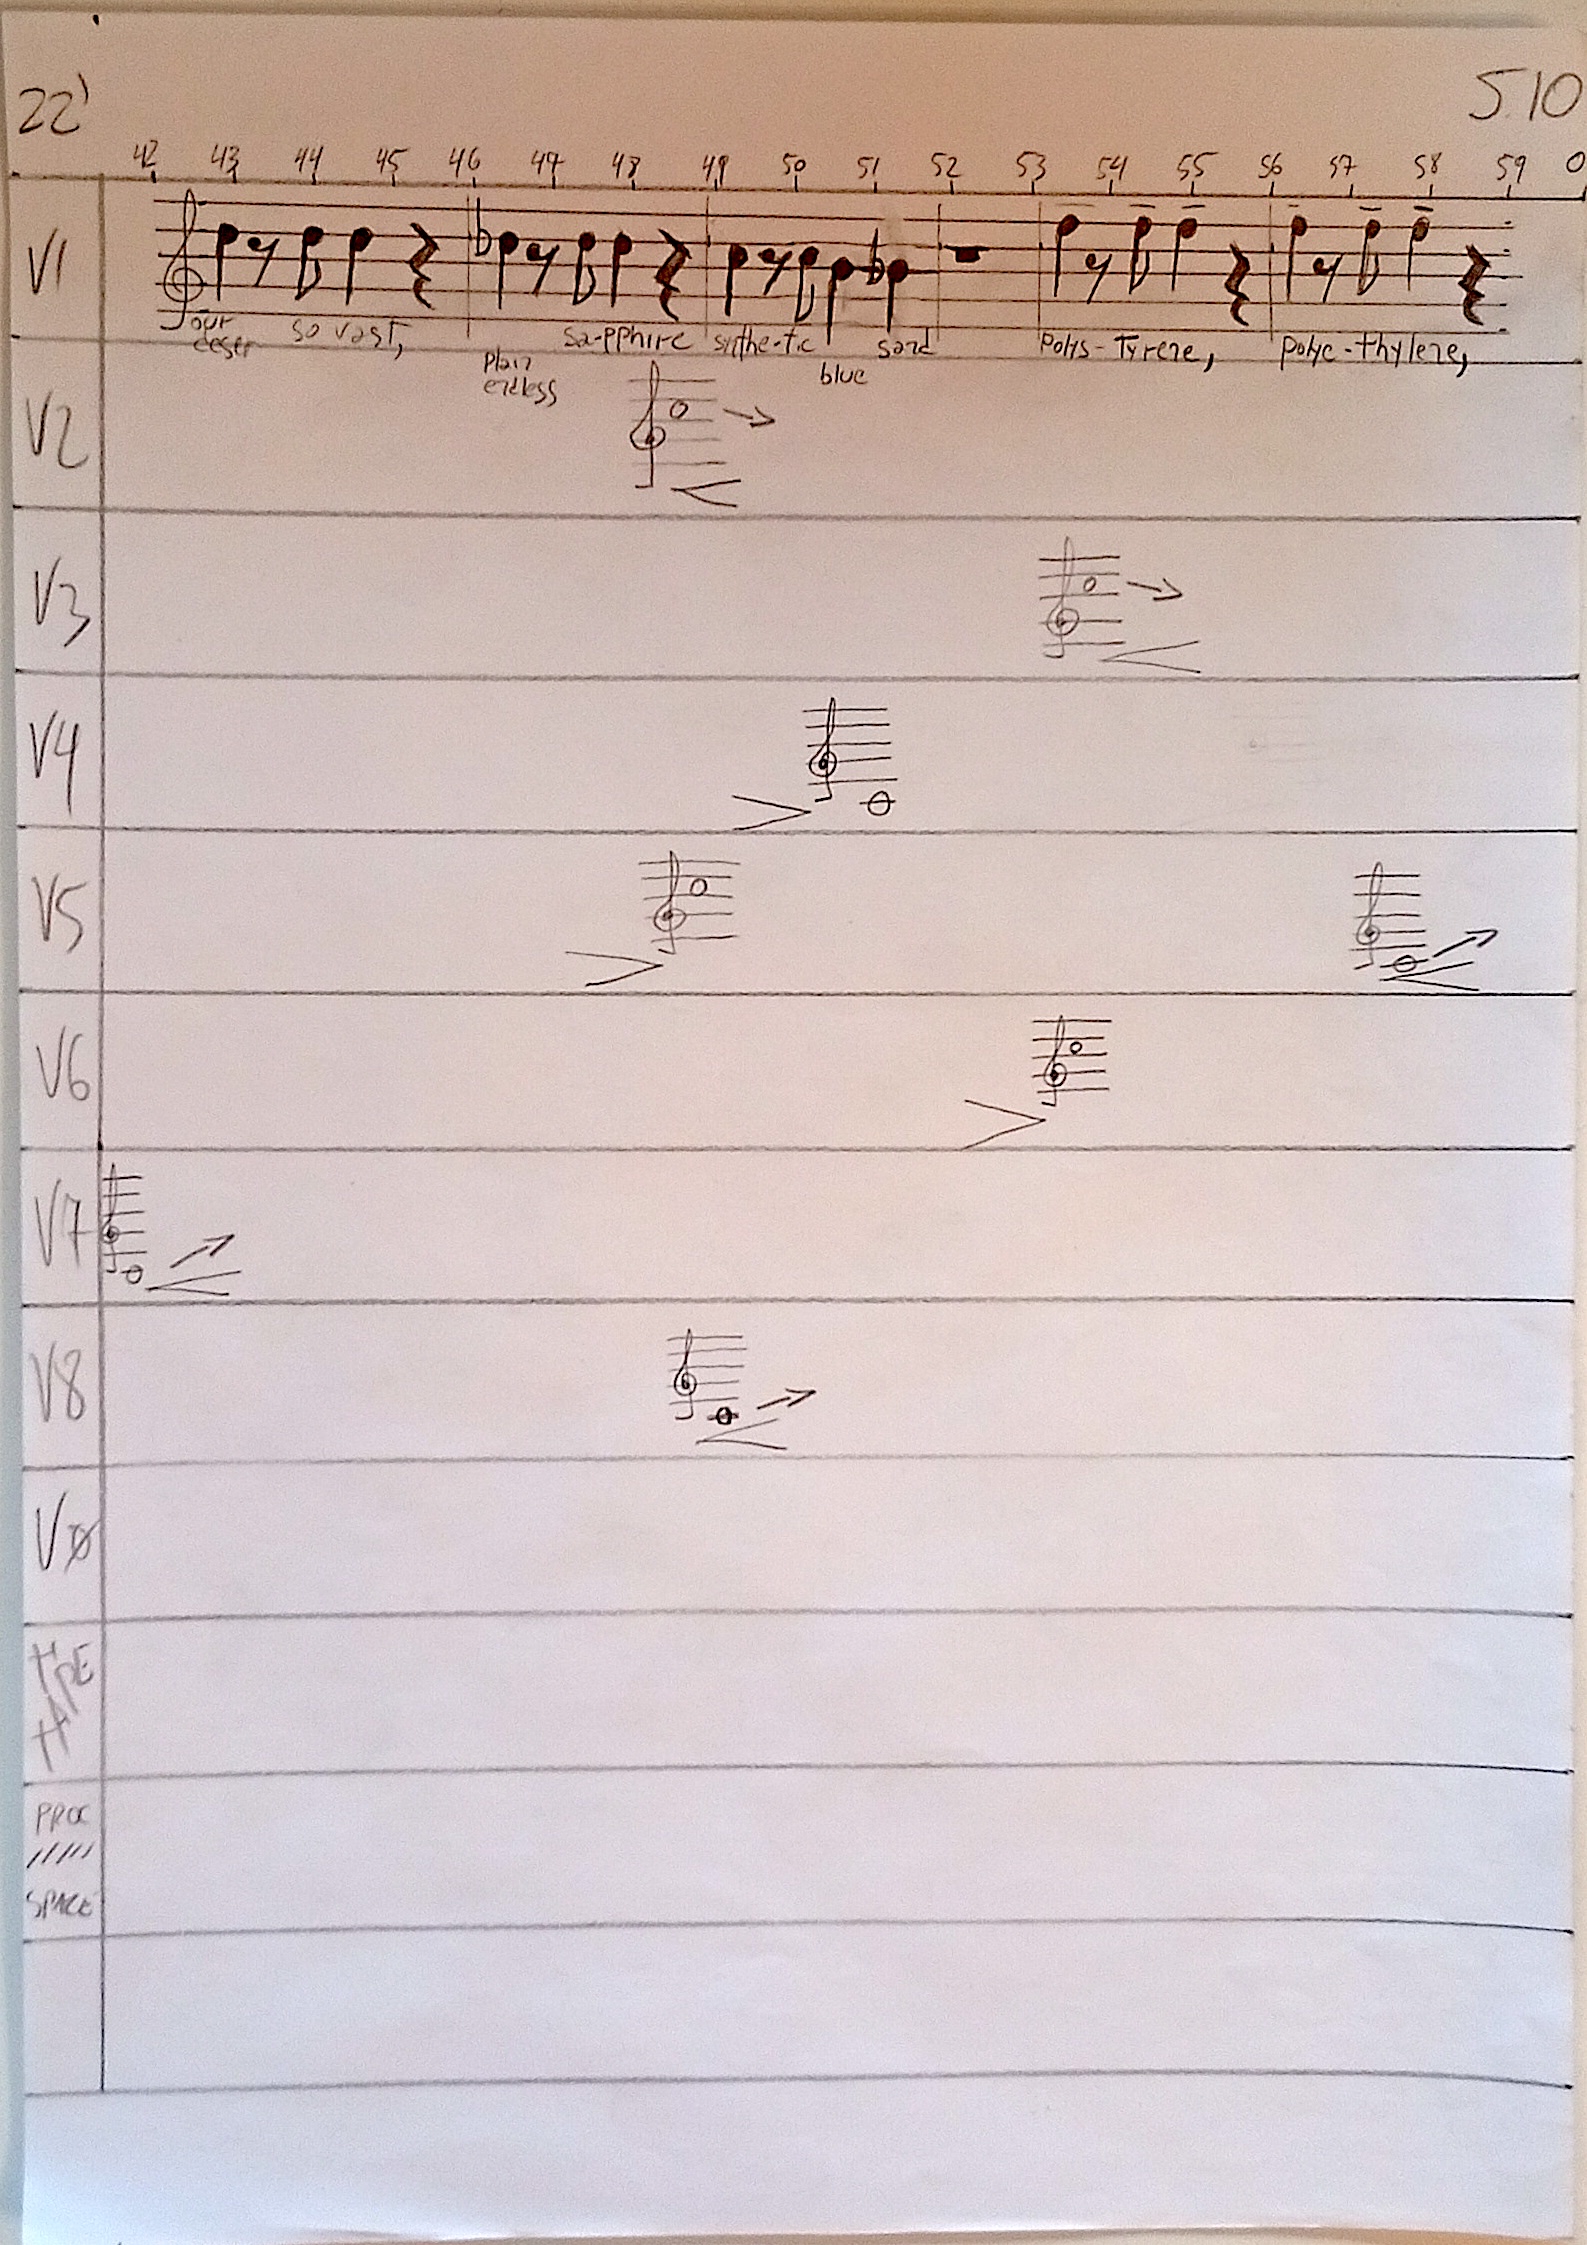 22'
S 10
42 43 44 45 46 47 48 49 50 51 52 53 54 55 56 57 58 59 0
V1
our so vast, sa-pphire sinthe-tic sand Polys-Tyrene, polye-thylene,
plain blue
endless
V2
V3
V4
V5
V6
V7
V8
VØ
TAPE
PROC
/////
SPACE